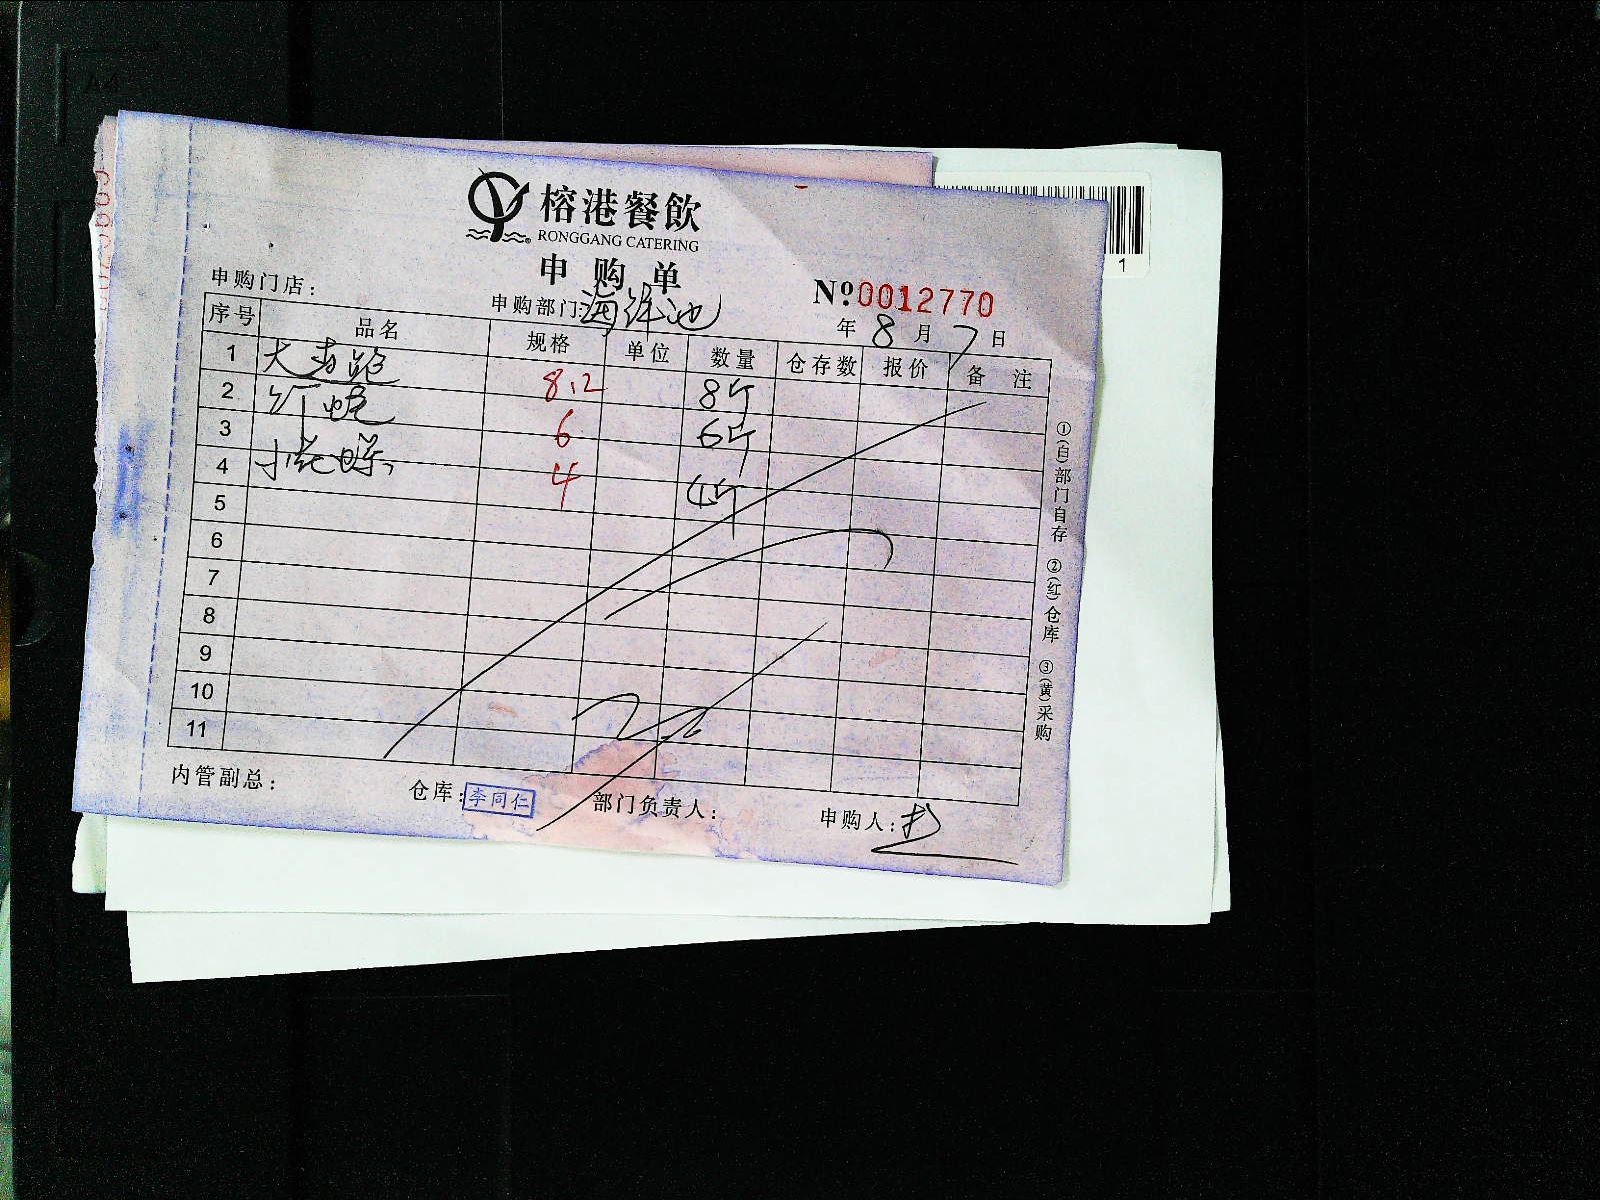 榕港餐飲
RONGGANG CATERING
申购单
申购门店：
申购部门：海鲜池
No 0012770
年 8 月 7 日
序号 品名 规格 单位 数量 仓存数 报价 备注
1 8.2 8斤
2 红 6 6斤
3 小花螺 4 4斤
4
5
6
7
8
9
10
11
①(白)部门自存 ②(红)仓库 ③(黄)采购
内管副总： 仓库：李同仁 部门负责人： 申购人：
1